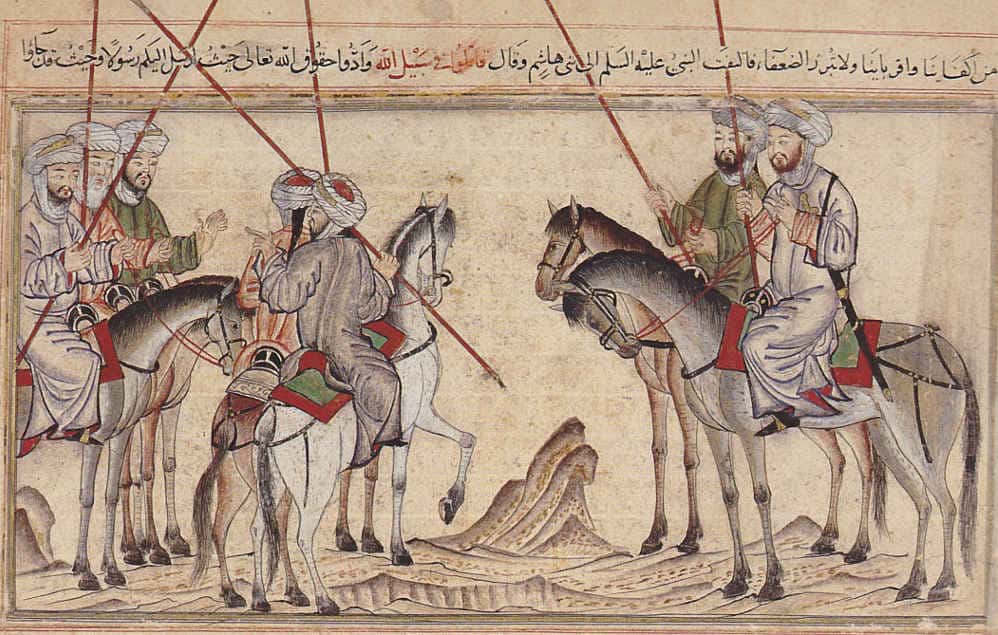 من اكفاىنا واقربائنا ولا نبرز الضعفاء فالتفت النبى عليه السلم الى بنى هاشم وقال قاتلوا فى سبيل الله وادّوا حقوق الله تعالى حيث ارسل اليكم رسولًا وحيث قد جاؤا